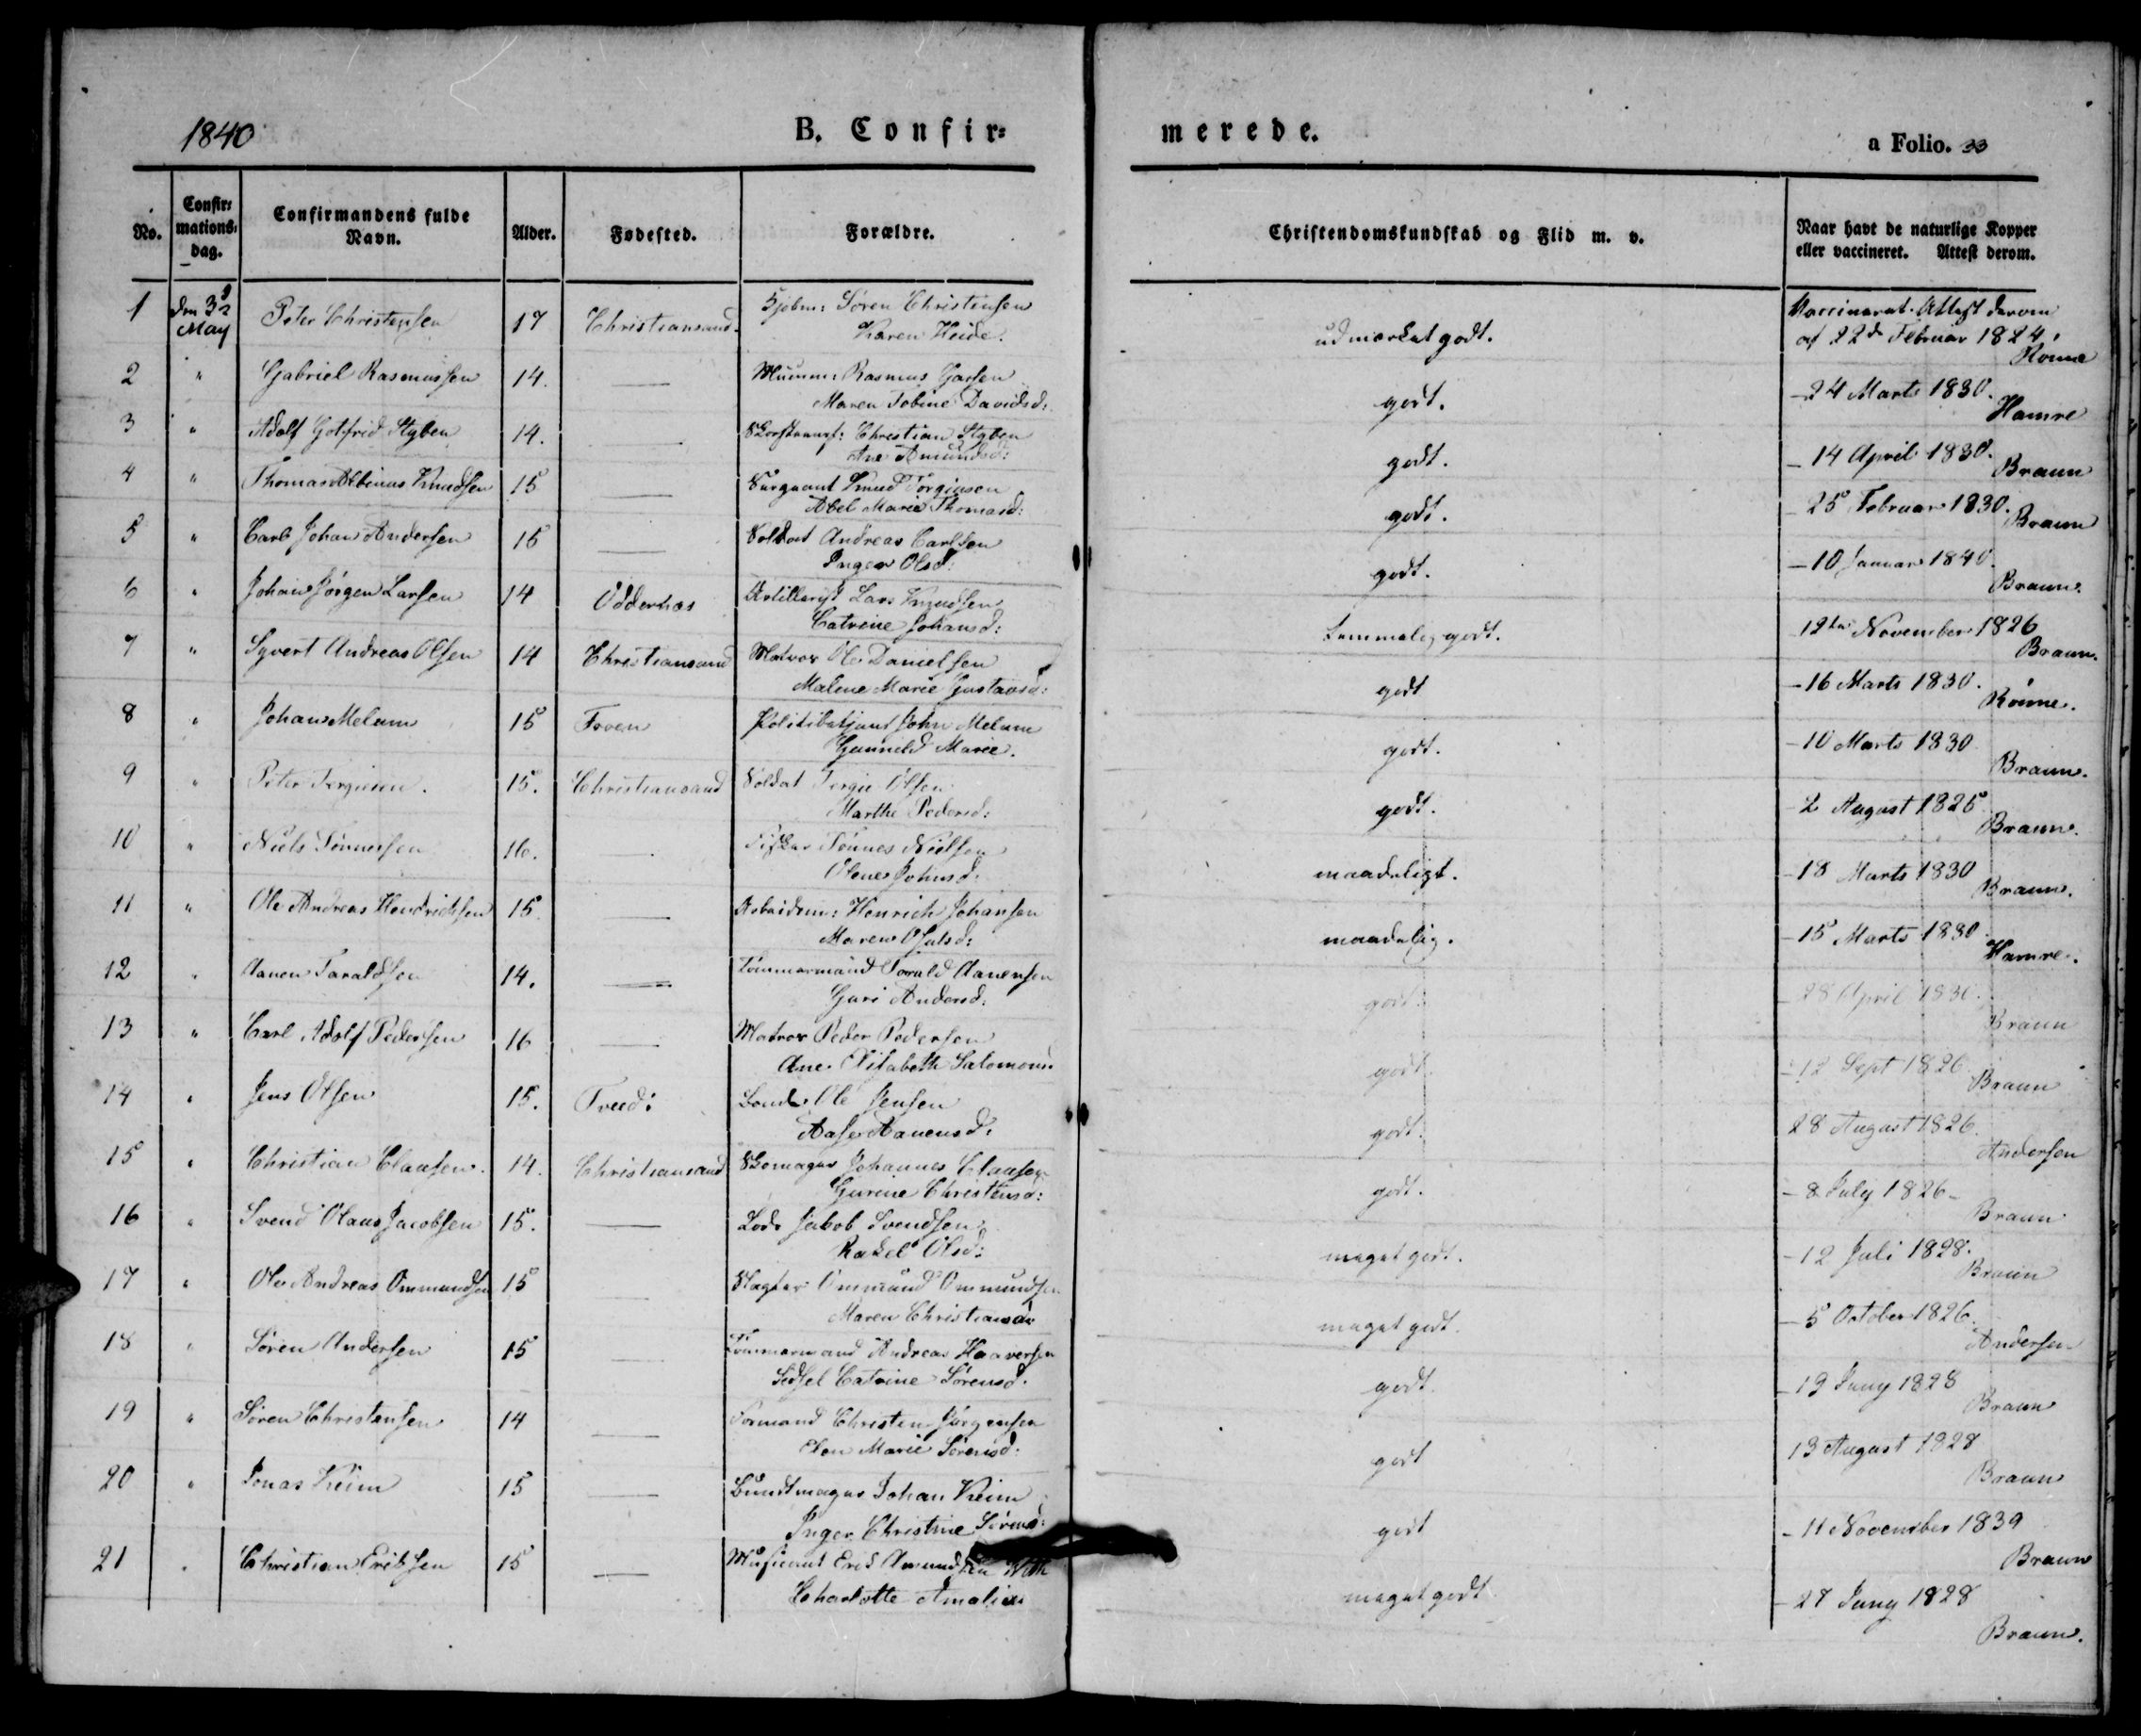 1840
B. Confir=
merede.
a Folio. 33
No.
Confir=
mations=
dag.
Confirmandens fulde
Navn.
Alder.
Fødested.
Forældre.
Christendomskundskab og Flid m. v.
Naar havt de naturlige Kopper
eller vaccineret. Attest derom.
1 den 3d May Peter Christensen 17 Christiansand. Søren Christensen
Karen Heide.
udmærket godt.
Vaccineret. Attest derom
af 22de Februar 1824.
Rönne
2 " Gabriel Rasmussen 14. — Rasmus
Maren Tobine Davidsd:
godt.
- 24 Marts 1830.
Hamre
3 " Adolf Gotfried Styben 14. — Christian Styben
Ane Amundsd:
godt.
- 14 April 1830.
Braun
4 " Thomas Albinus Knudsen 15 — Sergeant Knud Torgiusen
Abel Marie Thomasd:
godt.
25 Februar 1830.
Braun
5 " Carl Johan Andersen 15 — Soldat Andreas Carlsen
Inger Olsd:
godt.
- 10 Januar 1840.
Braun.
6 " Johan Jørgen Larsen 14 Oddernæs Artillerist Lars Knudsen
Catrine Johansd:
temmelig godt.
12te November 1826
Braun.
7 " Syvert Andreas Olsen 14 Christiansand Matros Ole Danielsen
Malene Marie Gustavsd:
godt
- 16 Marts 1830.
Rönne.
8 " Johan Melum 15 Politibetjent John Melum
Gunnild Marie.
godt.
- 10 Marts 1830
Braun.
9 " Peter Tergiesen. 15. Christiansand Soldat Tergie Olsen
Marthe Pedersd:
godt.
- 2 August 1825
Braun.
10 " Niels Tønnessen 16. — Fisker Tønnes Nielsen
Olene Johnsd:
maadeligt.
- 18 Marts 1830
Braun.
11 " Ole Andreas Hendrichsen 15. — Arbeidsm: Henrich Johansen
Maren
maadelig.
- 15 Marts 1830
Hamre.
12 " Aanen Taraldsen 14. — Tømmermand Torald Aanensen
Guri Andersd:
godt.
- 28 April 1830.
Braun
13 " Carl Adolf Pedersen 16 — Matros Peder Pedersen
Ane Elisabeth Salomonsd
godt.
- 12 Sept 1826
Braun
14 " Jens Olsen 15. Tveed: Bonde Ole Jensen
Aase Aanensd:
godt.
28 August 1826.
Andersen
15 " Christian Clausen. 14. Christiansand Skomager Johannes Clausen
Gurine Christensd:
godt.
- 8 July 1826 -
Braun
16 " Svend Olaus Jacobsen 15. — Lods Jakob Svendsen
Rakel Olsd:
meget godt.
- 12 Juli 1828.
Braun
17 " Ole Andreas Ommundsen 15 — Slagter Ommund Ommundsen
Maren Christiansd
meget godt.
- 5 October 1826.
Andersen
18 " Søren Andersen 15 — Tømmermand Andreas Haaversen
Sidsel Catrine Sørensd.
godt.
- 19 Juny 1828
Braun
19 " Søren Christensen 14 — Formand Christen Jørgensen
Elen Marie Sørensd:
godt
13 August 1828
Braun
20 " Jonas Keim 15 — Bundtmager Johan Keim
Inger Christine Sørensd:
godt
- 11 November 1839
Braun
21 " Christian Eriksen 15 — Musicant Erik Amundsen
Charlotte Amalia
meget godt
- 27 Juny 1828
Braun.